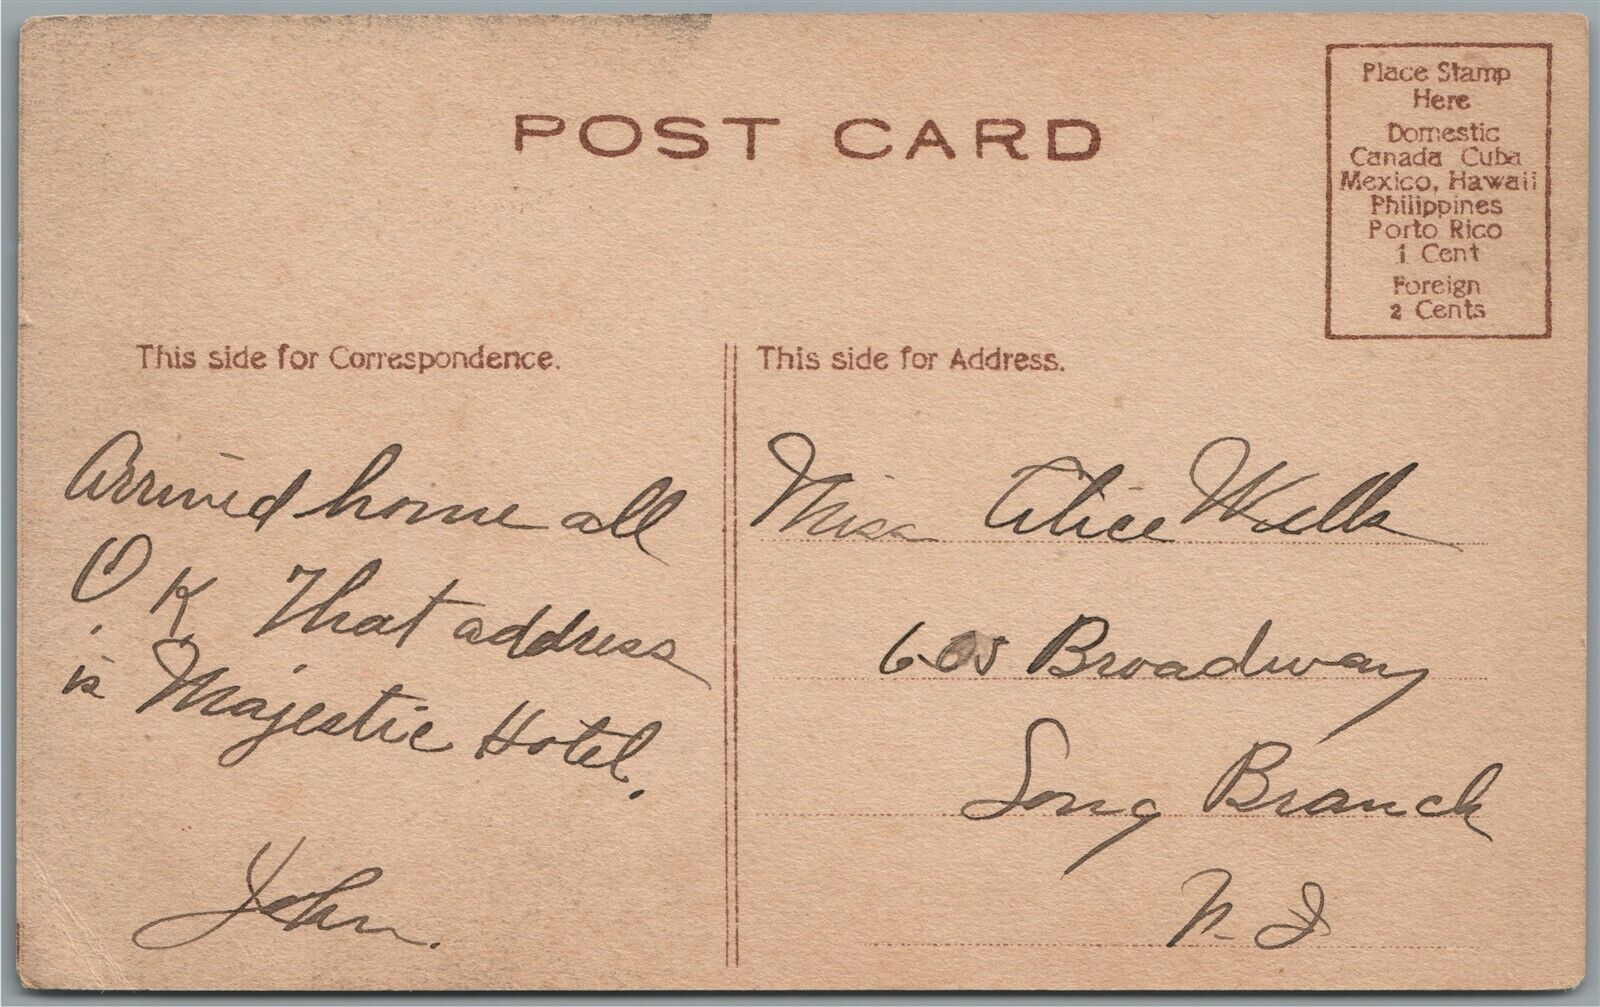 POST CARD
Place Stamp
Here
Domestic
Canada Cuba
Mexico, Hawaii
Philippines
Porto Rico
1 Cent
Foreign
2 Cents
This side for Correspondence.
Arrived home all
O.K. That address
is Majestic Hotel.
John.
This side for Address.
Miss Alice Wells
605 Broadway
Long Branch
N-J